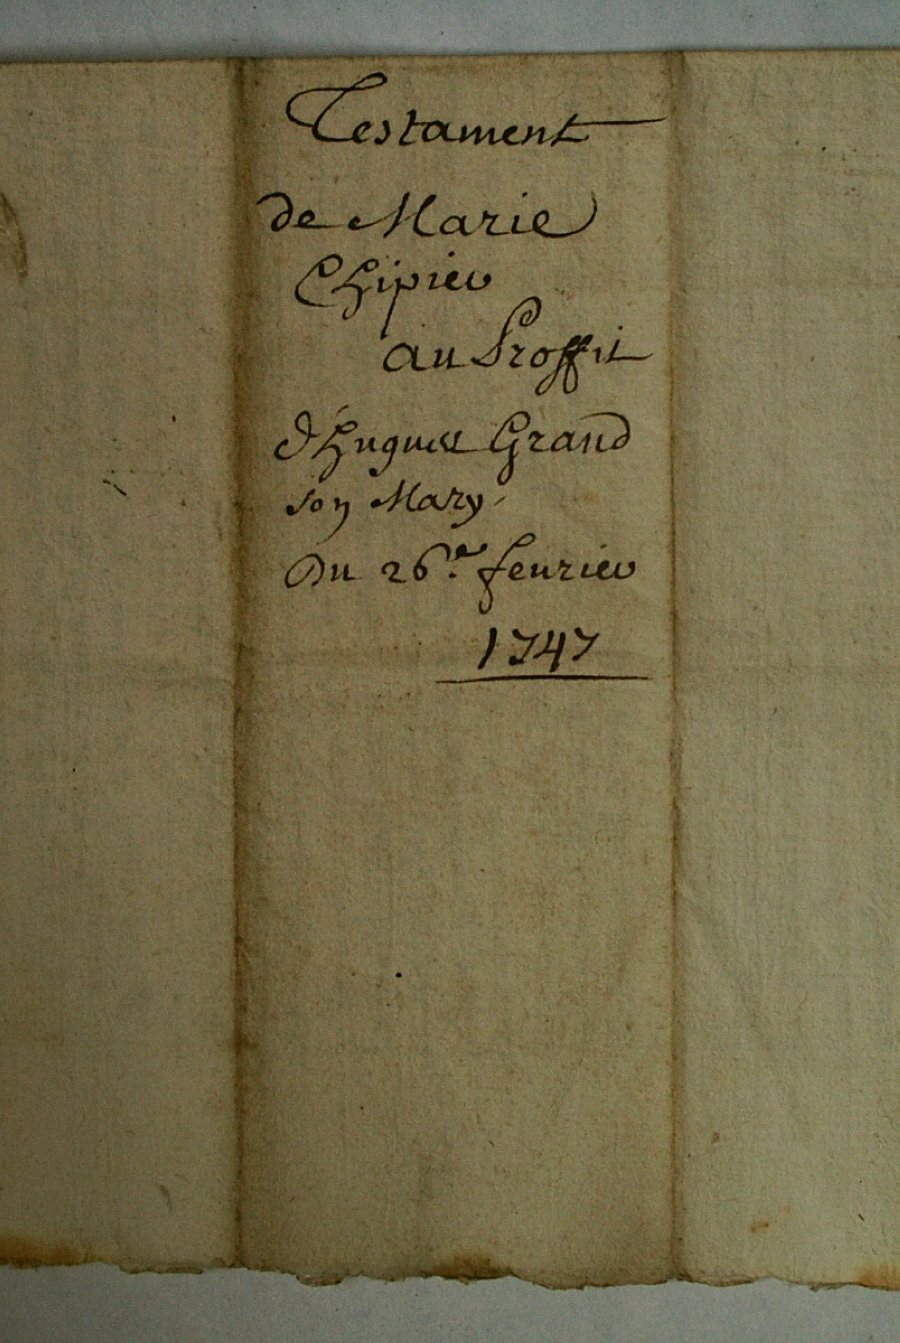 Testament
de Marie
Chipier
au Proffit
d'hugues Grand
son Mary
Du 26.e feurier
1747